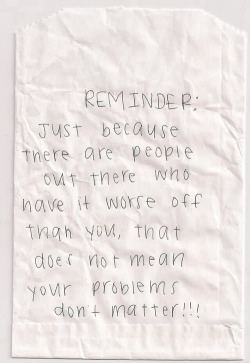 REMINDER:
Just because
there are people
out there who
have it worse off
than you, that
does not mean
your problems
don't matter!!!